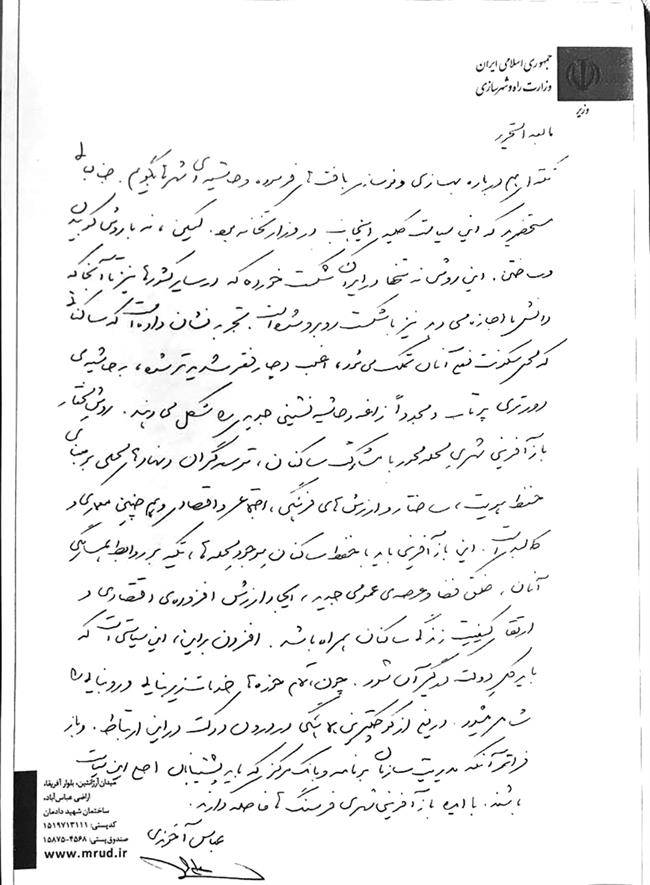 جمهوری اسلامی ایران
وزارت راه و شهرسازی
وزیر
مابعد التحریر
نکته‌ای هم درباره بهسازی و نوسازی بافت‌های فرسوده و حاشیه‌ای شهرها بگویم. جنابعالی
مستحضرید که این سیاست کلیدی اینجانب در وزارتخانه بود. لیکن، نه با روش کوبیدن
و ساختن. این روش نه تنها در ایران شکست خورده که در سایر کشورها نیز تا آنجا که
دانش ما اجازه می‌دهد نیز با شکست روبرو شده است. تجربه نشان داده است که ساکنانی
که محل سکونت فعلی آنان تملک می‌شود، اغلب دچار فقر شدیدتر شده، به حاشیه‌ی
دورتری پرتاب و مجدداً زاغه و حاشیه نشینی جدیدی را شکل می‌دهند. روش مختار
بازآفرینی شهری محله محور با مشارکت ساکنان، توسعه‌گران و نهادهای محلی بر مبنای
حفظ هویت، ساختار و ارزش‌های فرهنگی، اجتماعی و اقتصادی و هم چنین معماری و
کالبدی است. این بازآفرینی باید با حفظ ساکنان موجود محله‌ها، تکیه بر روابط همسایگی
آنان، خلق فضا و عرصه‌ی عمومی جدید، ایجاد ارزش افزوده‌ی اقتصادی و
ارتقای کیفیت زندگی ساکنان همراه باشد. افزون بر این، این سیاستی است که
باید کل دولت درگیر آن شود. چون تمام حوزه‌های خدمات زیربنایی و روبنایی را
شامل می‌شود. دریغ از کوچکترین هماهنگی در درون دولت در این ارتباط. و باز
فراتر آنکه مدیریت سازمان برنامه و بانک مرکزی که باید پشتیبان اصلی این سیاست
باشند. با ایده بازآفرینی شهری فرسنگ‌ها فاصله دارند.
عباس آخوندی
میدان آرژانتین، بلوار آفریقا،
اراضی عباس‌آباد،
ساختمان شهید دادمان
کدپستی: ۱۵۱۹۷۱۳۱۱۱
صندوق پستی: ۴۵۶۸-۱۵۸۷۵
www.mrud.ir